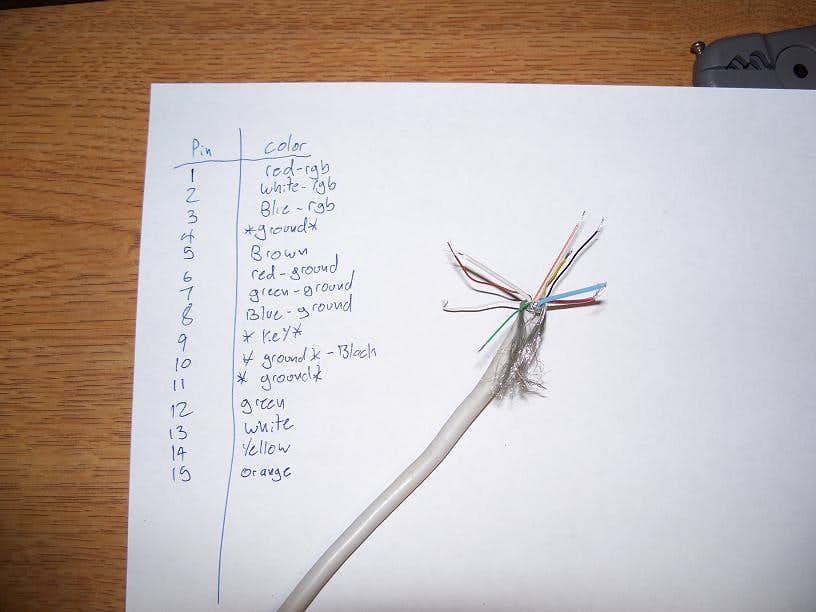 Pin color
1 red-rgb
2 white-rgb
3 Blue-rgb
4 *ground*
5 Brown
6 red-ground
7 green-ground
8 Blue-ground
9 *Key*
10 *ground*-Black
11 *ground*
12 green
13 white
14 Yellow
15 orange